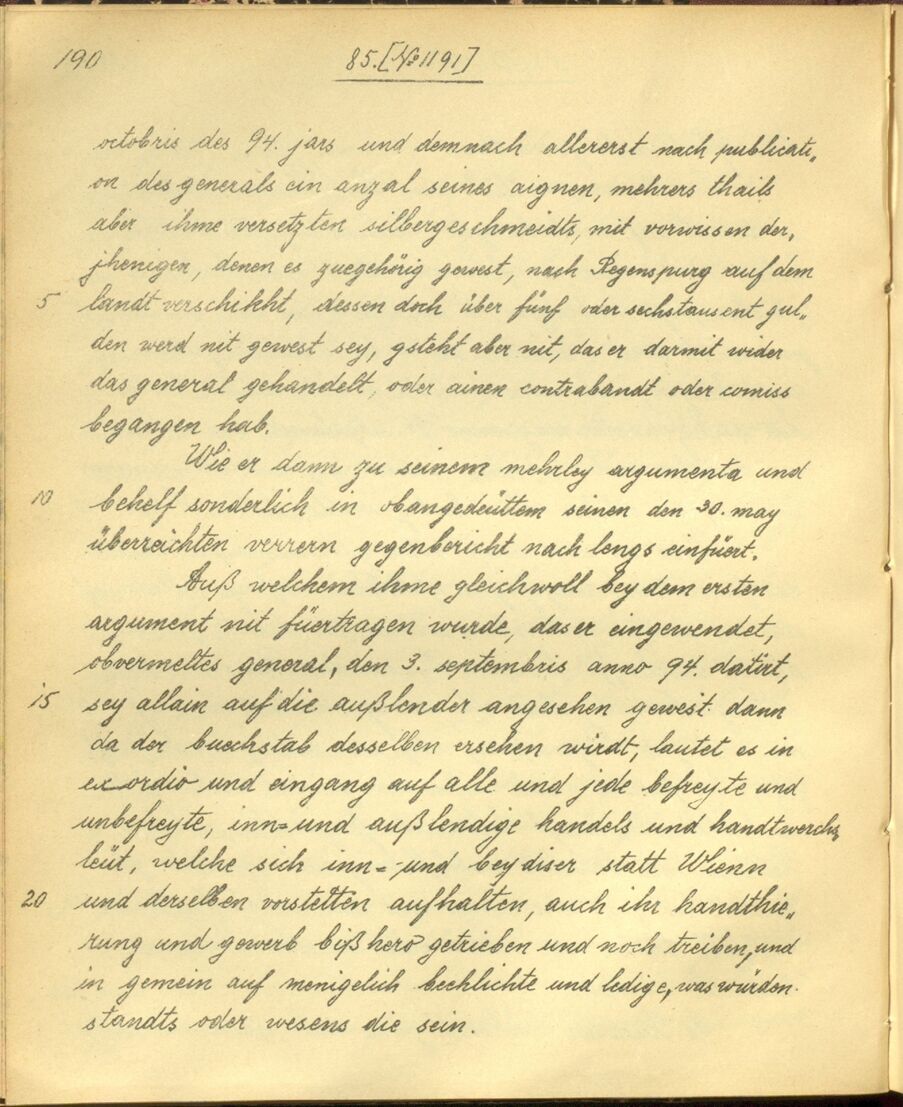 190
85. [№ 1191]
octobris des 94. jars und demnach allererst nach publicati„
on des generals ein anzal seines aignen, mehrers thails
aber ihme versetzten silbergeschmeidts, mit vorwissen der„
jhenigen, denen es zuegehörig gewest, nach Regenspurg auf dem
5 landt verschikht, dessen doch über fünf oder sechstausent gul„
den werd nit gewest sey, gsteht aber nit, das er darmit wider
das general gehandelt, oder ainen contrabandt oder comiss
begangen hab.
Wie er dann zu seinem mehrley argumenta und
10 behelf sonderlich in obangedeüttem seinen den 30. may
überraichten verrern gegenbericht nach lengs einfüert.
Auß welchem ihme gleichwoll bey dem ersten
argument nit füertragen wurde, das er eingewendet,
obvermeltes general, den 3. septembris anno 94. datirt,
15 sey allain auf die außlender angesehen gewest dann
da der buechstab desselben ersehen wirdt, lautet es in
exordio und eingang auf alle und jede befreyte und
unbefreyte, inn= und außlendige handels und handtwerchs
leüt, welche sich inn= und bey diser statt Wienn
20 und derselben vorstetten aufhalten, auch ihr handthie„
rung und gewerb bißhero getrieben und noch treiben, und
in gemein auf menigelich bechlichte und ledige, was würden
standts oder wesens die sein.